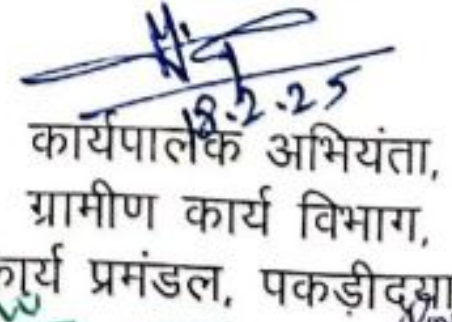 18.2.25
कार्यपालक अभियंता,
ग्रामीण कार्य विभाग,
कार्य प्रमंडल, पकड़ीदयाल